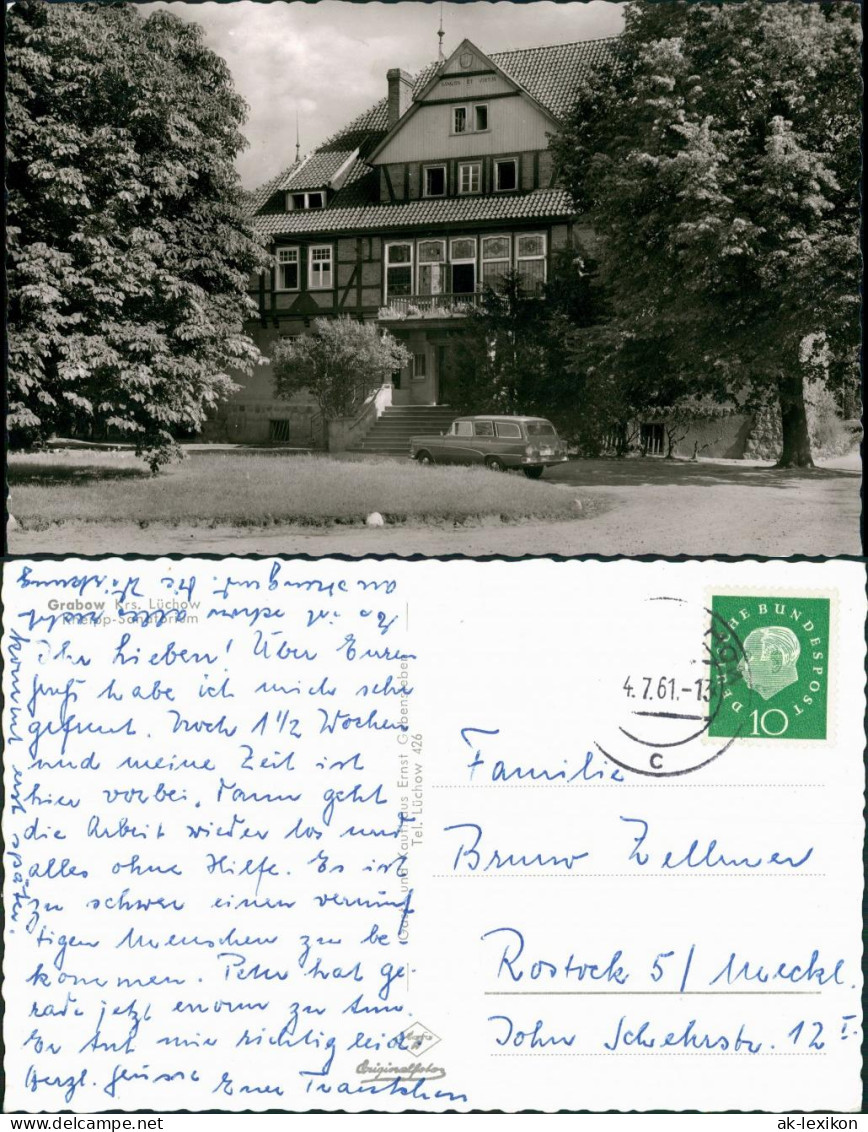 Grabow Krs. Lüchow
Kneipp-Sanatorium
Ihr Lieben! Über Euren
Gruß habe ich mich sehr
gefreut. Noch 1 1/2 Wochen
und meine Zeit ist
hier vorbei. Dann geht
die Arbeit wieder los und
alles ohne Hilfe. Es ist
zu schwer einen vernünf
tigen Menschen zu be
kommen. Peter hat ge-
rade jetzt enorm zu tun.
Er tut mir richtig leid.
Herzl. Grüsse Euer Trautchen
Es ist schon alles recht
anstrengend. die Wirkung
kommt erst später.
Gast- und Kaufhaus Ernst
Tel. Lüchow 426
Originalfoto
DEUTSCHE BUNDESPOST
10
4.7.61.-13
c
Familie
Bruno Zellmer
Rostock 5/ Meckl.
John Schehrstr. 12 I.
www.delcampe.net
ak-lexikon